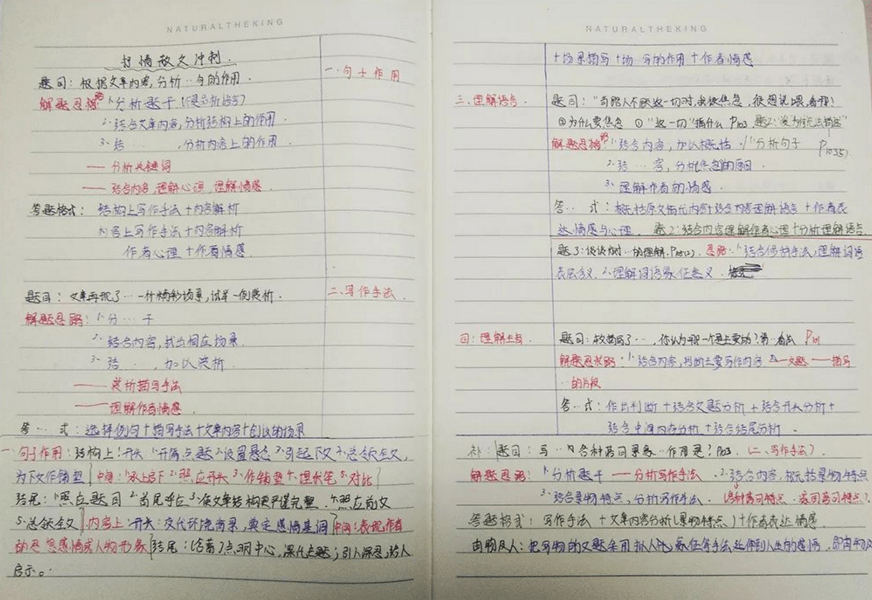 NATURALTHEKING
抒情散文冲刺.
题问：根据文章内容,分析…句的作用.
一.句子作用
解题思路 1.分析题干(是否析语句)
2.结合文章内容,分析结构上的作用.
3.结……,分析内容上的作用.
——分析关键词
——结合内容,理解心理,理解情感.
答题格式： 结构上写作手法+内容解析
内容上写作手法+内容解析
作者心理 +作者情感.
题问：文章再现了…一个个精彩场景,试举一例赏析.
二.写作手法.
解题思路： 1.分…干
2.结合内容,找出相应场景.
3.结……,加以赏析.
——赏析描写手法
——理解作者情感.
答…式：选择例句+描写手法+文章内容+
一.句子作用：结构上：开头：1.开篇点题2.设置悬念3.引起下文4.总领全文,
为下文作铺垫 中间：1.承上启下2.照应开头3.作铺垫4.埋伏笔5.对比
结尾：1.照应题目2.首尾呼应3.使文章结构更严谨完整.4.照应前文
5.总结全文 内容上：开头：交代环境背景,奠定感情基调 中间：表现作者
的思想感情或人物形象 结尾：含蓄了点明中心,深化主题；引人深思,给人
启示。
NATURALTHEKING
+场景描写+场…写的作用+作者情感
三.理解语句.
①为什么要焦急 ②"这一切"指什么 P103
解题思路 1.结合内容,加以概括. 1.分析句子 P103
2.结…容,分析焦急的原因.
3.理解作者的情感.
答…式：概括原文指代内容+结合内容理解语句+作者表
达情感与心理. 题2：结合内容理解作者心理+分析理解语句
题3：谈谈对…的理解. 思路：1.结合修辞手法,理解词语
表层含义.2.理解词语象征意义.
四：理解主旨 题问：
解题思路：1.结合内容,判断主要写作内容 2.——文题.——描写
的片段
答…式：作出判断+结合文题分析+结合开头分析+
结合中间内容分析+结合结尾分析.
补：题问：写…内各种景物景象…作用是? P103. (二.写作手法)
解题思路：1.分析题干——分析写作手法. 2.结合内容,概括景物特点
3.结合景物特点,分析写作手法.
答题格式：写作手法+文章内容分析(景物特点)+作者表达情感.
由物及人：把写物的文题采用拟人化,象征等手法延伸到人生的感悟,